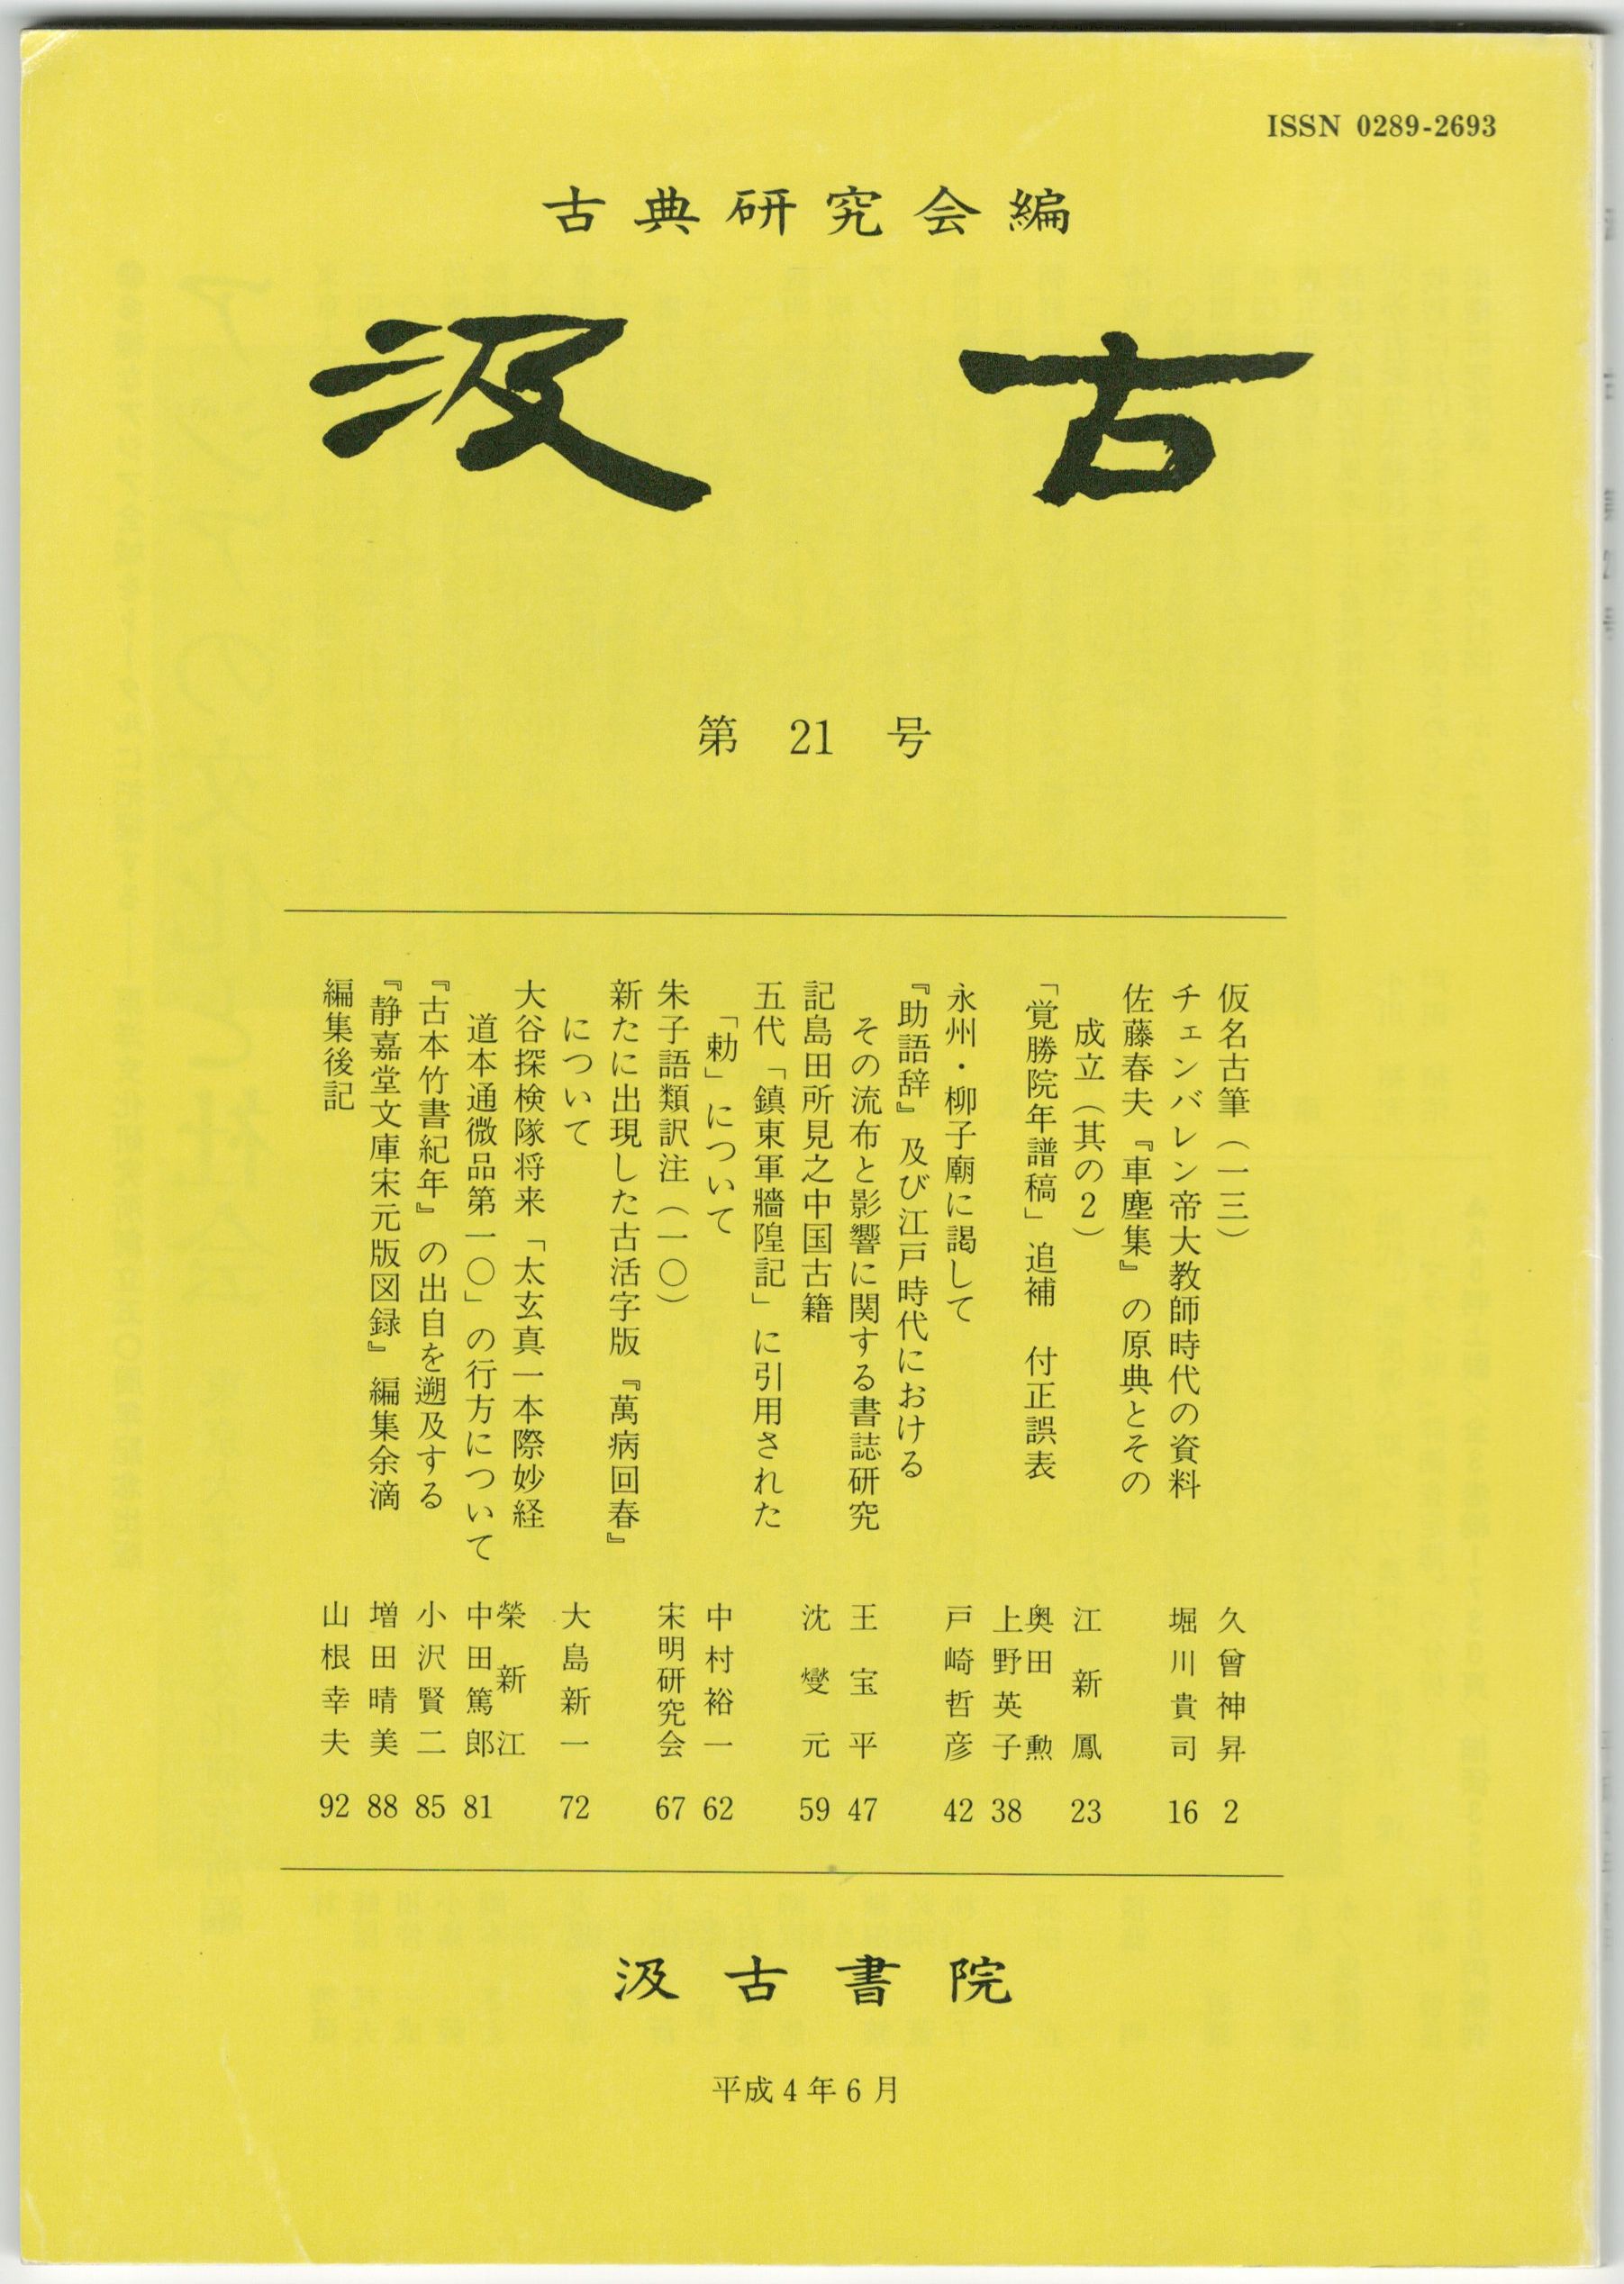 ISSN 0289-2693
古典研究会編
汲古
第 21 号
仮名古筆（一三） 久曾神昇 2
チェンバレン帝大教師時代の資料 堀川貴司 16
佐藤春夫『車塵集』の原典とその
成立（其の２） 江新鳳 23
「覚勝院年譜稿」追補 付正誤表 奥田勲
上野英子 38
永州・柳子廟に謁して 戸崎哲彦 42
『助語辞』及び江戸時代における
その流布と影響に関する書誌研究 王宝平 47
記島田所見之中国古籍 沈燮元 59
五代「鎮東軍牆隍記」に引用された
「勅」について 中村裕一 62
朱子語類訳注（一〇） 宋明研究会 67
新たに出現した古活字版『萬病回春』
について 大島新一 72
大谷探検隊将来「太玄真一本際妙経 榮新江
道本通微品第一〇」の行方について 中田篤郎 81
『古本竹書紀年』の出自を遡及する 小沢賢二 85
『静嘉堂文庫宋元版図録』編集余滴 増田晴美 88
編集後記 山根幸夫 92
汲古書院
平成4年6月